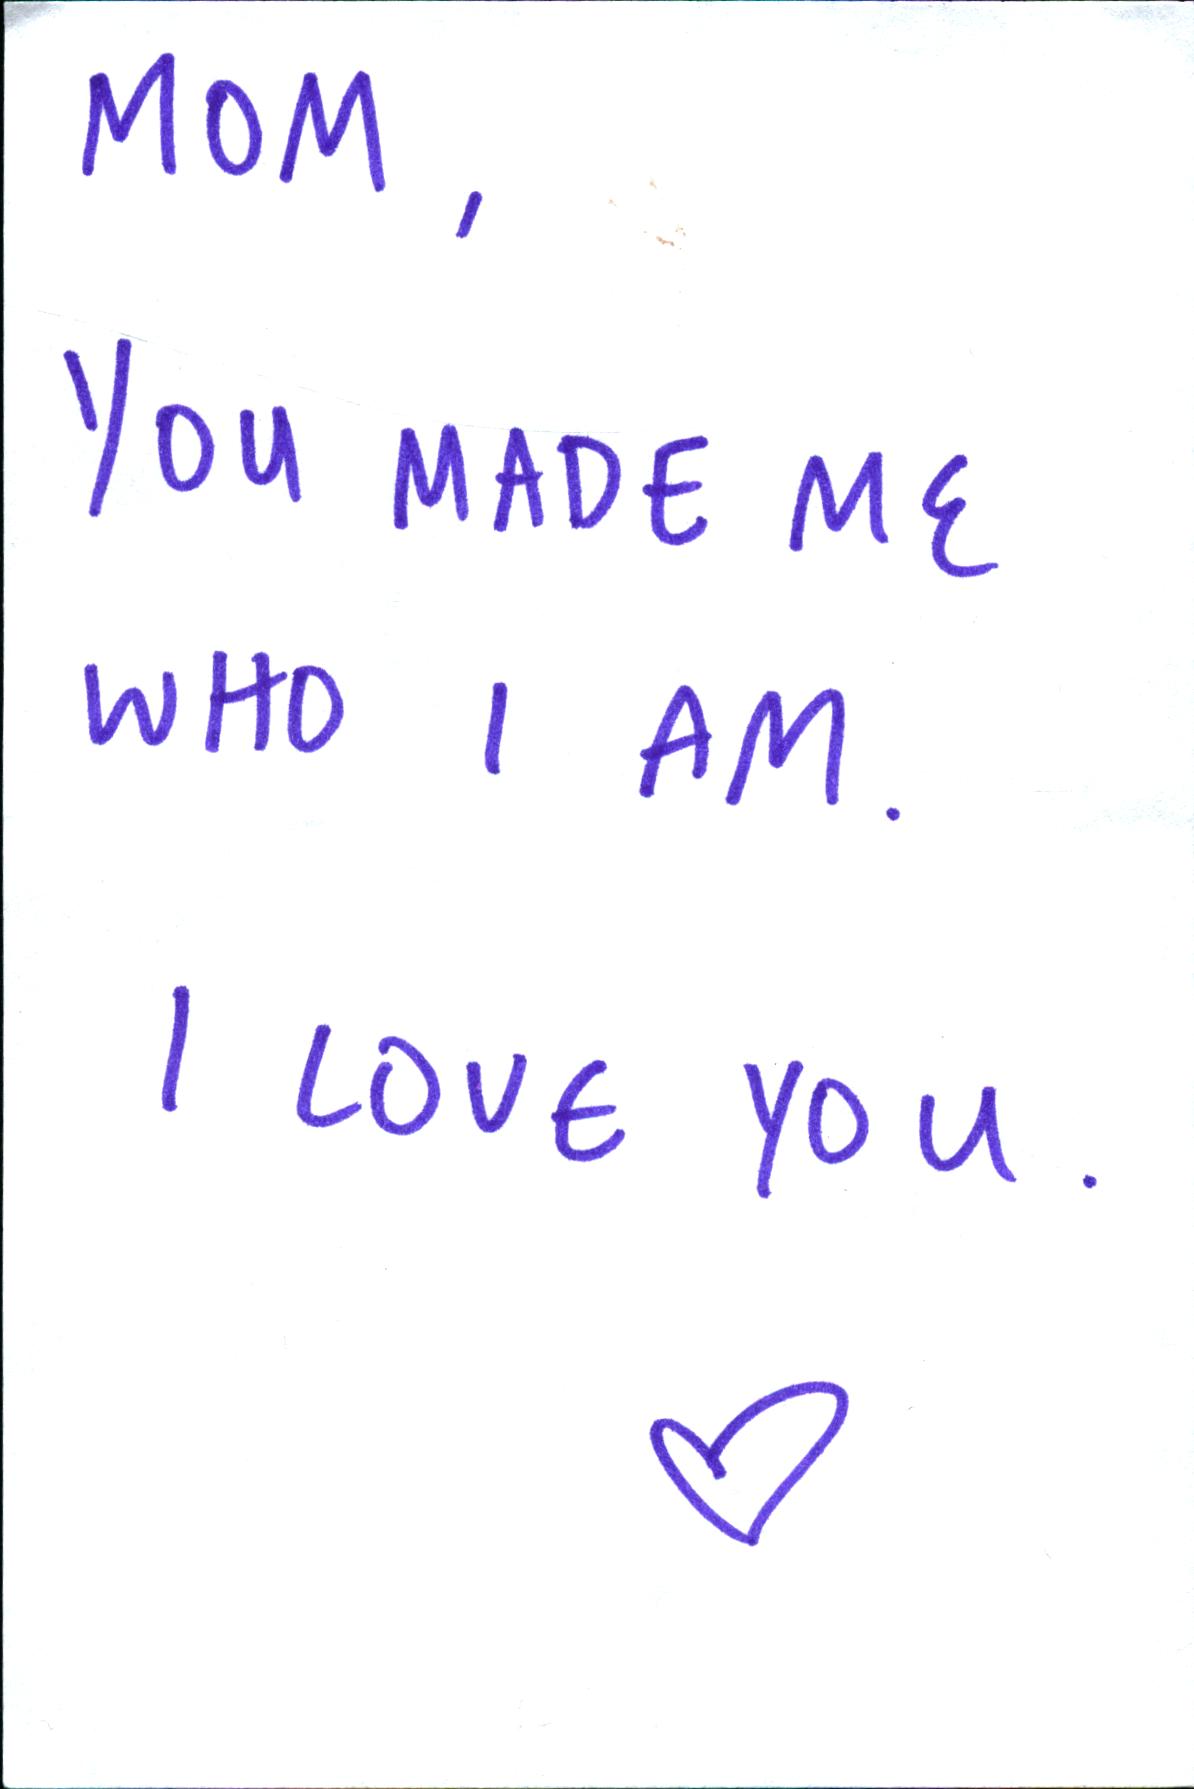 MOM,
YOU MADE ME
WHO I AM.
I LOVE YOU.